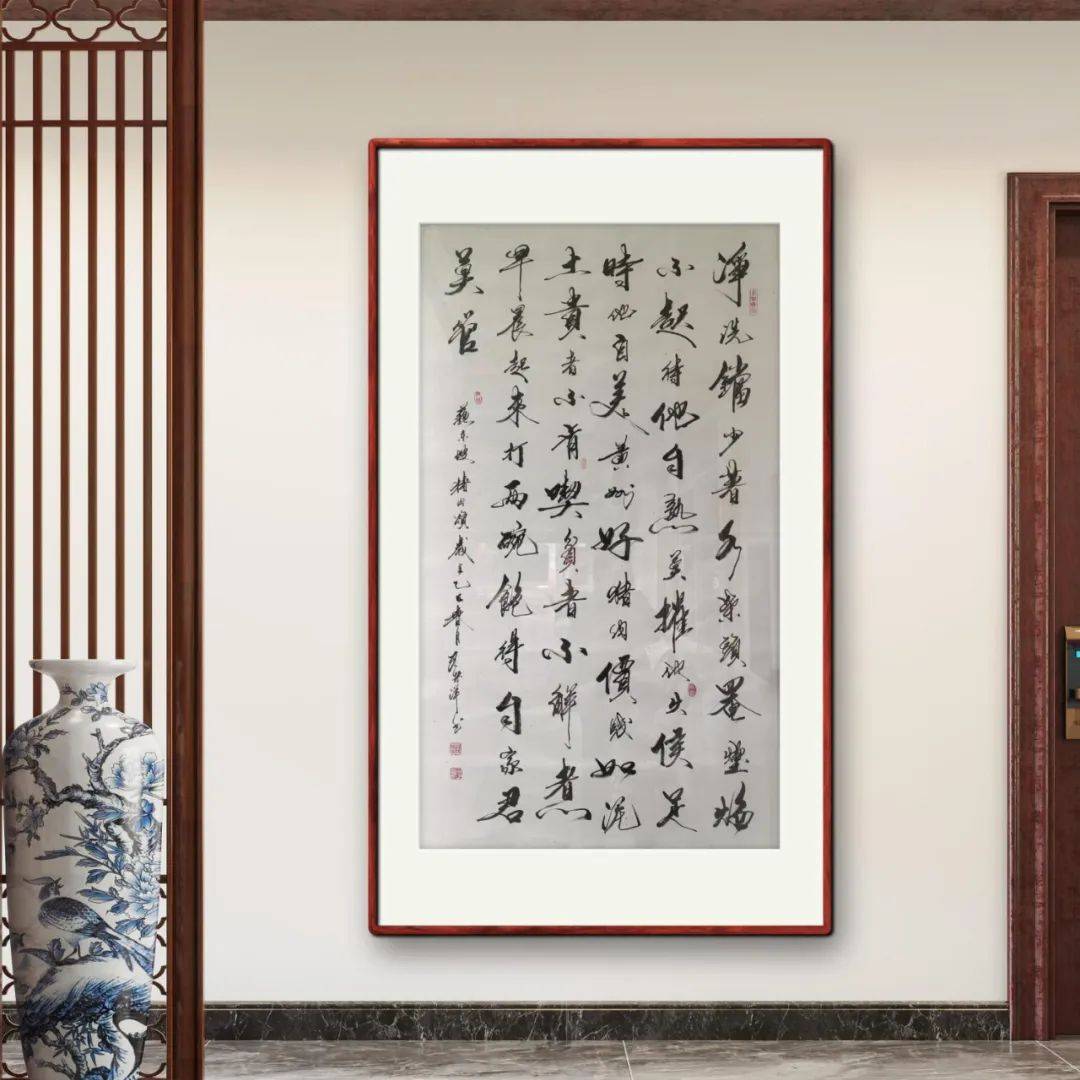 淨洗鐺少著水柴頭罨煙焰
不起待他自熟莫摧他火侯足
時他自美黃州好猪肉價賤如泥
土貴者不肯喫貧者不解煮
早晨起來打兩碗飽得自家君
莫管
蘇東坡猪肉頌歲在乙巳春月